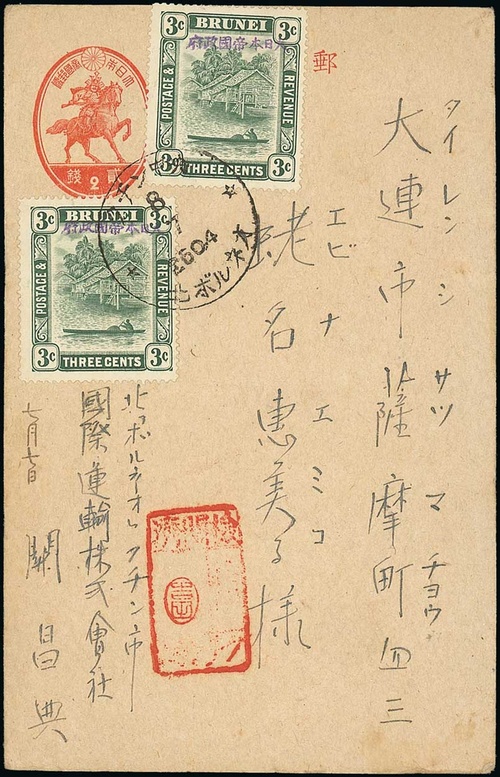 郵
大日本帝國郵便
貳 2 錢
3c BRUNEI 3c
日本帝國政府
POSTAGE & REVENUE
3c THREE CENTS 3c
3c BRUNEI 3c
日本帝國政府
POSTAGE & REVENUE
3c THREE CENTS 3c
8
2604
北ボルネオ
タイレンシサツマチョウ
大連市薩摩町四三
エビナエミコ
蛯名惠美子様
檢閲済
北ボルネオクチン市
國際運輸株式會社
七月七日
關昌典